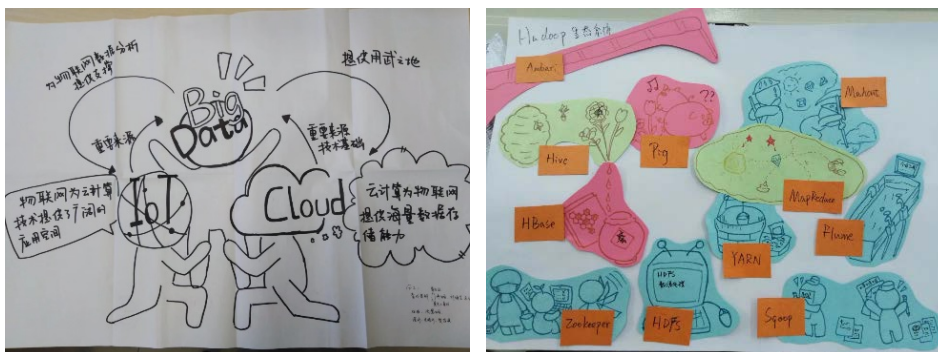 为物联网数据分析
提供支撑
提供用武之地
Big
Data
重要来源
重要来源
技术基础
物联网为云计算
技术提供了广阔的
应用空间
IoT
Cloud
云计算为物联网
提供海量数据存
储能力
Hadoop 生态系统
Ambari
♫
??
Mahout
Hive
Pig
MapReduce
HBase
Flume
YARN
HDFS
Zookeeper
HDFS
Sqoop